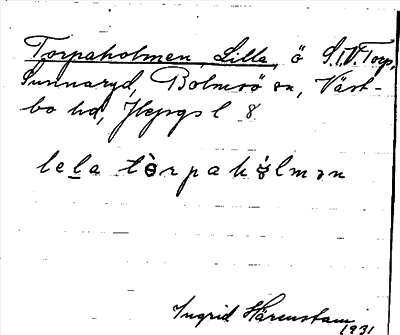 Torpaholmen, Lilla, ö S.I.V. Torp,
Sunnaryd, Bolmsö sn, Väst-
bo hd, Jkpgs l 8
lela tòrpahólmən
Ingrid Härenstam
1931